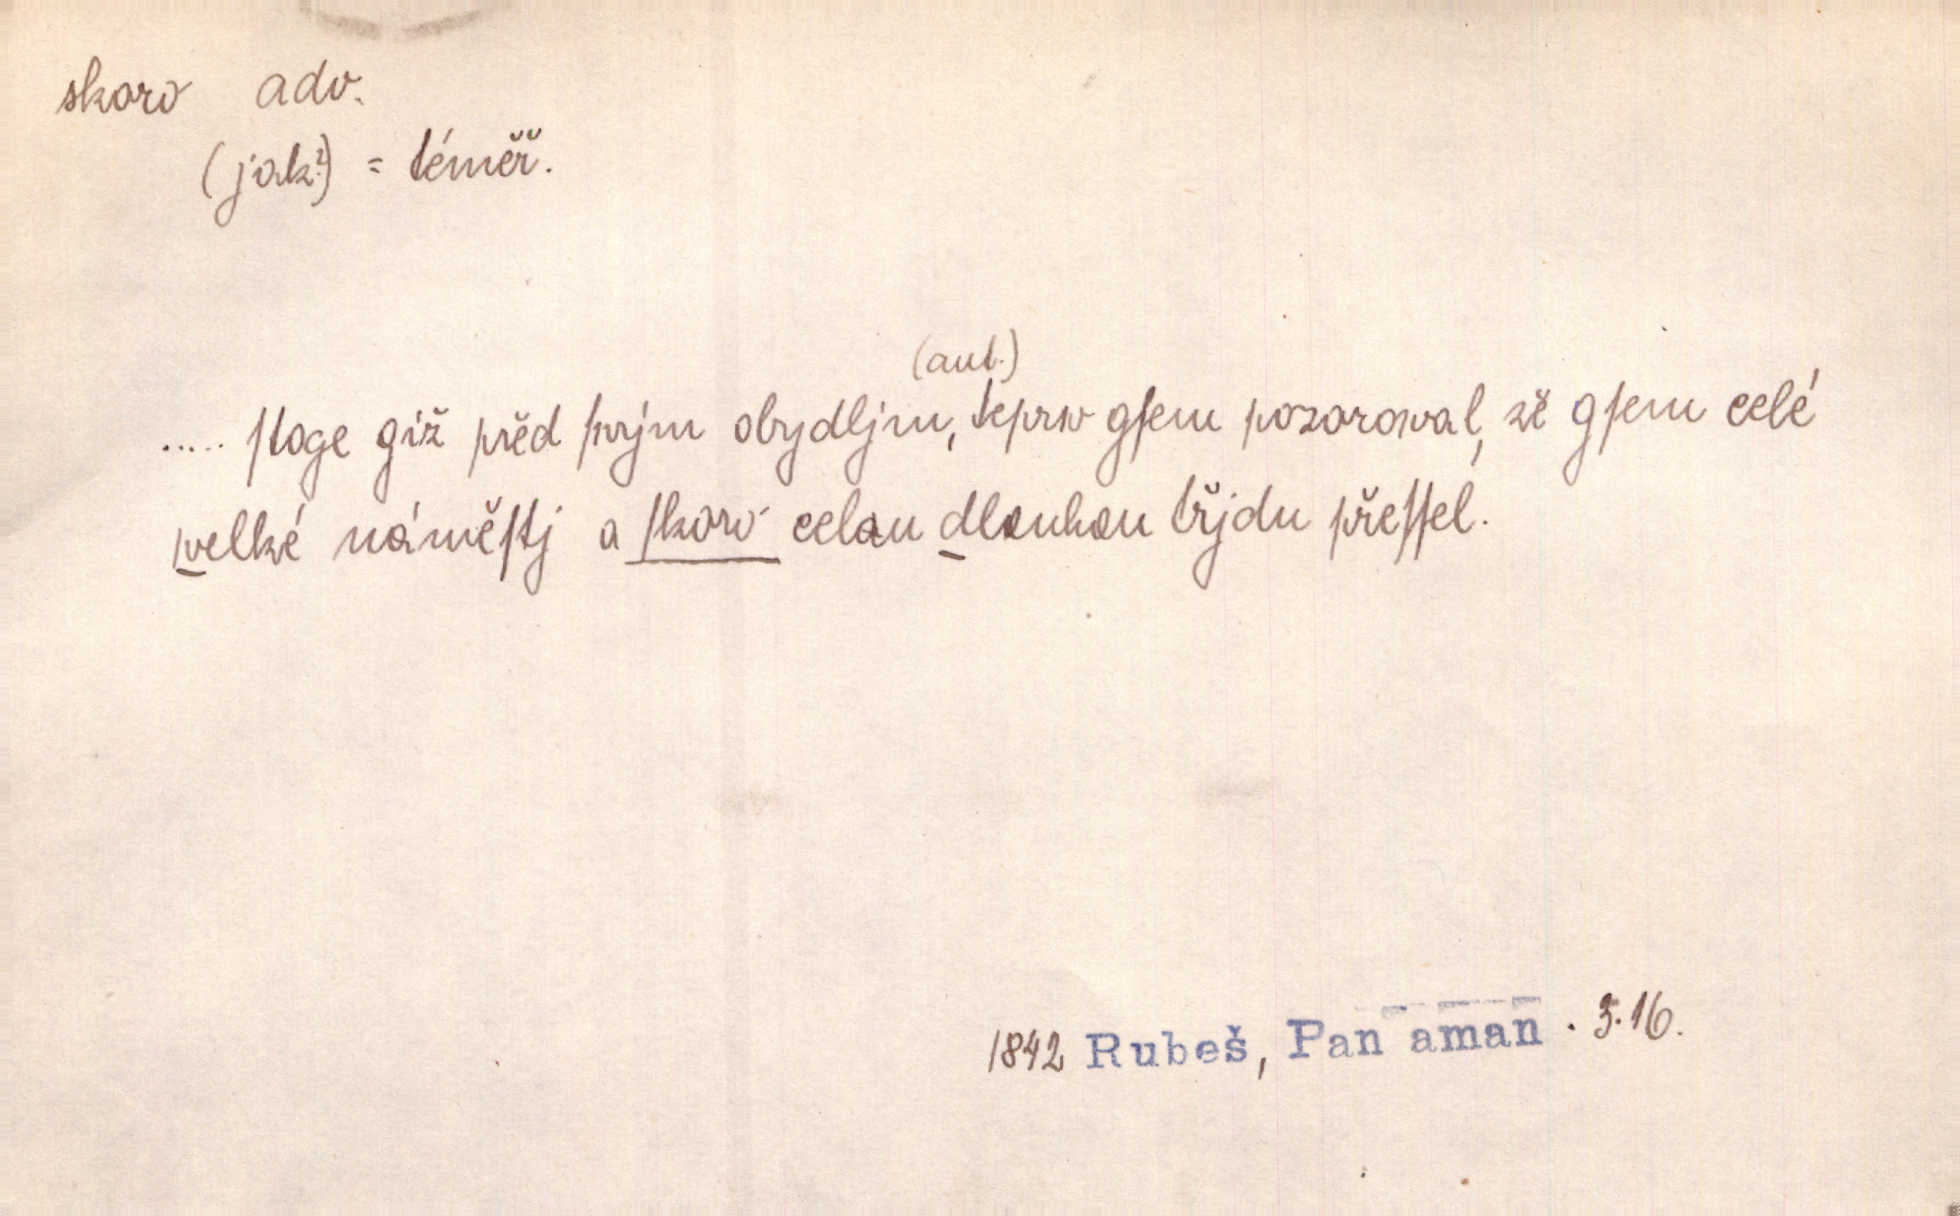 skoro adv.
(jak?) = téměř.
(aut.)
..... ſtoge giž před ſwým obydljm, teprw gſem pozorowal, že gſem celé
welké náměſtj a ſkoro celau dlouhou třjdu přeſſel.
1842 Rubeš, Pan aman . 3.16.